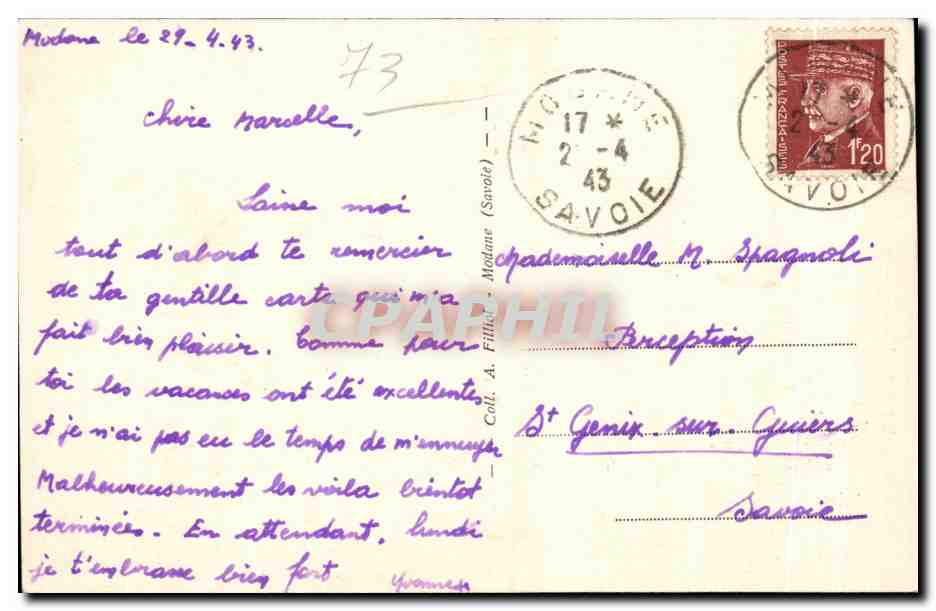 Modane le 29-4.43.
73
Chère Marcelle,
Laisse moi
tout d'abord te remercier
de ta gentille carte qui m'a
fait bien plaisir. Comme pour
toi les vacances ont été excellentes
et je n'ai pas eu le temps de m'ennuyer
Malheureusement les voila bientot
terminées. En attendant, lundi
je t'embrasse bien fort
Yvonne
Coll. A. Filliol Modane (Savoie)
MODANE
17 *
2 -4
43
SAVOIE
POSTES FRANÇAISES
1F20
17 *
2 -4
43
SAVOIE
Mademoiselle M. Spagnoli
Perception
St Genix-sur-Guiers
Savoie
CPAPHIL